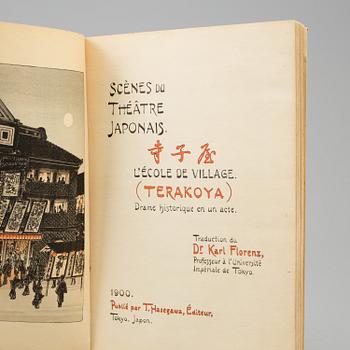 SCÈNES DU
THÉÂTRE
JAPONAIS.
寺子屋
L'ÉCOLE DE VILLAGE.
(TERAKOYA)
Drame historique en un acte.
Traduction du
Dr. Karl Florenz,
Professeur à l'Université
Impériale de Tokyo.
1900.
Publié par T. Hasegawa, Éditeur,
Tokyo, Japon.